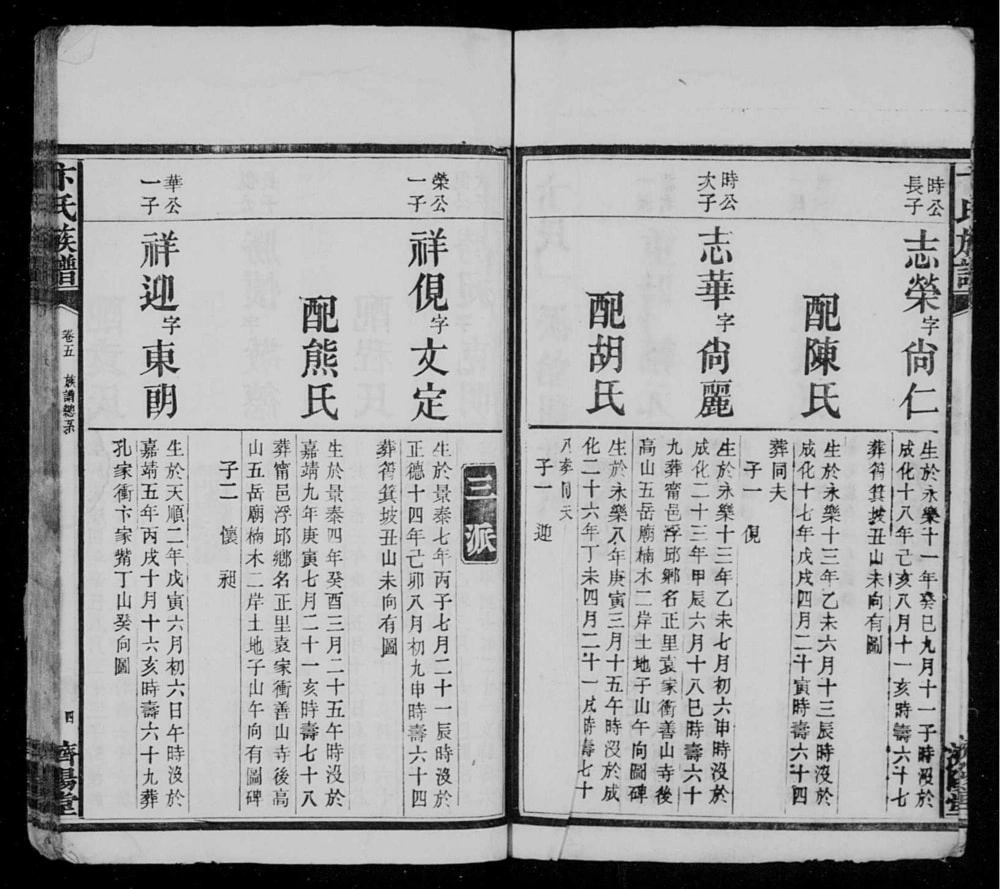 時公
長子
志榮字尙仁
生於永樂十一年癸巳九月十一子時沒於
成化十八年己亥八月十一亥時壽六十七
葬筲箕坡丑山未向有圖
配陳氏
生於永樂十三年乙未六月十三辰時沒於
成化十七年戊戌四月二十寅時壽六十四
葬同夫
子一 俔
時公
次子
志華字尙麗
生於永樂十三年乙未七月初六申時沒於
成化二十三年甲辰六月十八巳時壽六十
九葬甯邑浮邱鄉名正里袁家衝善山寺後
高山五岳廟楠木二岸土地子山午向圖碑
配胡氏
生於永樂八年庚寅三月十五午時沒於成
化二十六年丁未四月二十一戌時壽七十
八葬同夫
子一 迎
三派
榮公
一子
祥俔字文定
生於景泰七年丙子七月二十一辰時沒於
正德十四年己卯八月初九申時壽六十四
葬筲箕坡丑山未向有圖
配熊氏
生於景泰四年癸酉三月二十五午時沒於
嘉靖九年庚寅七月二十一亥時壽七十八
葬甯邑浮邱鄉名正里袁家衝善山寺後高
山五岳廟楠木二岸土地子山午向有圖碑
子二 懷 昶
華公
一子
祥迎字東明
生於天順二年戊寅六月初六日午時沒於
嘉靖五年丙戌十月十六亥時壽六十九葬
孔家衝卞家觜丁山癸向圖
卞氏族譜
卷五 族譜總系
四
濟陽堂